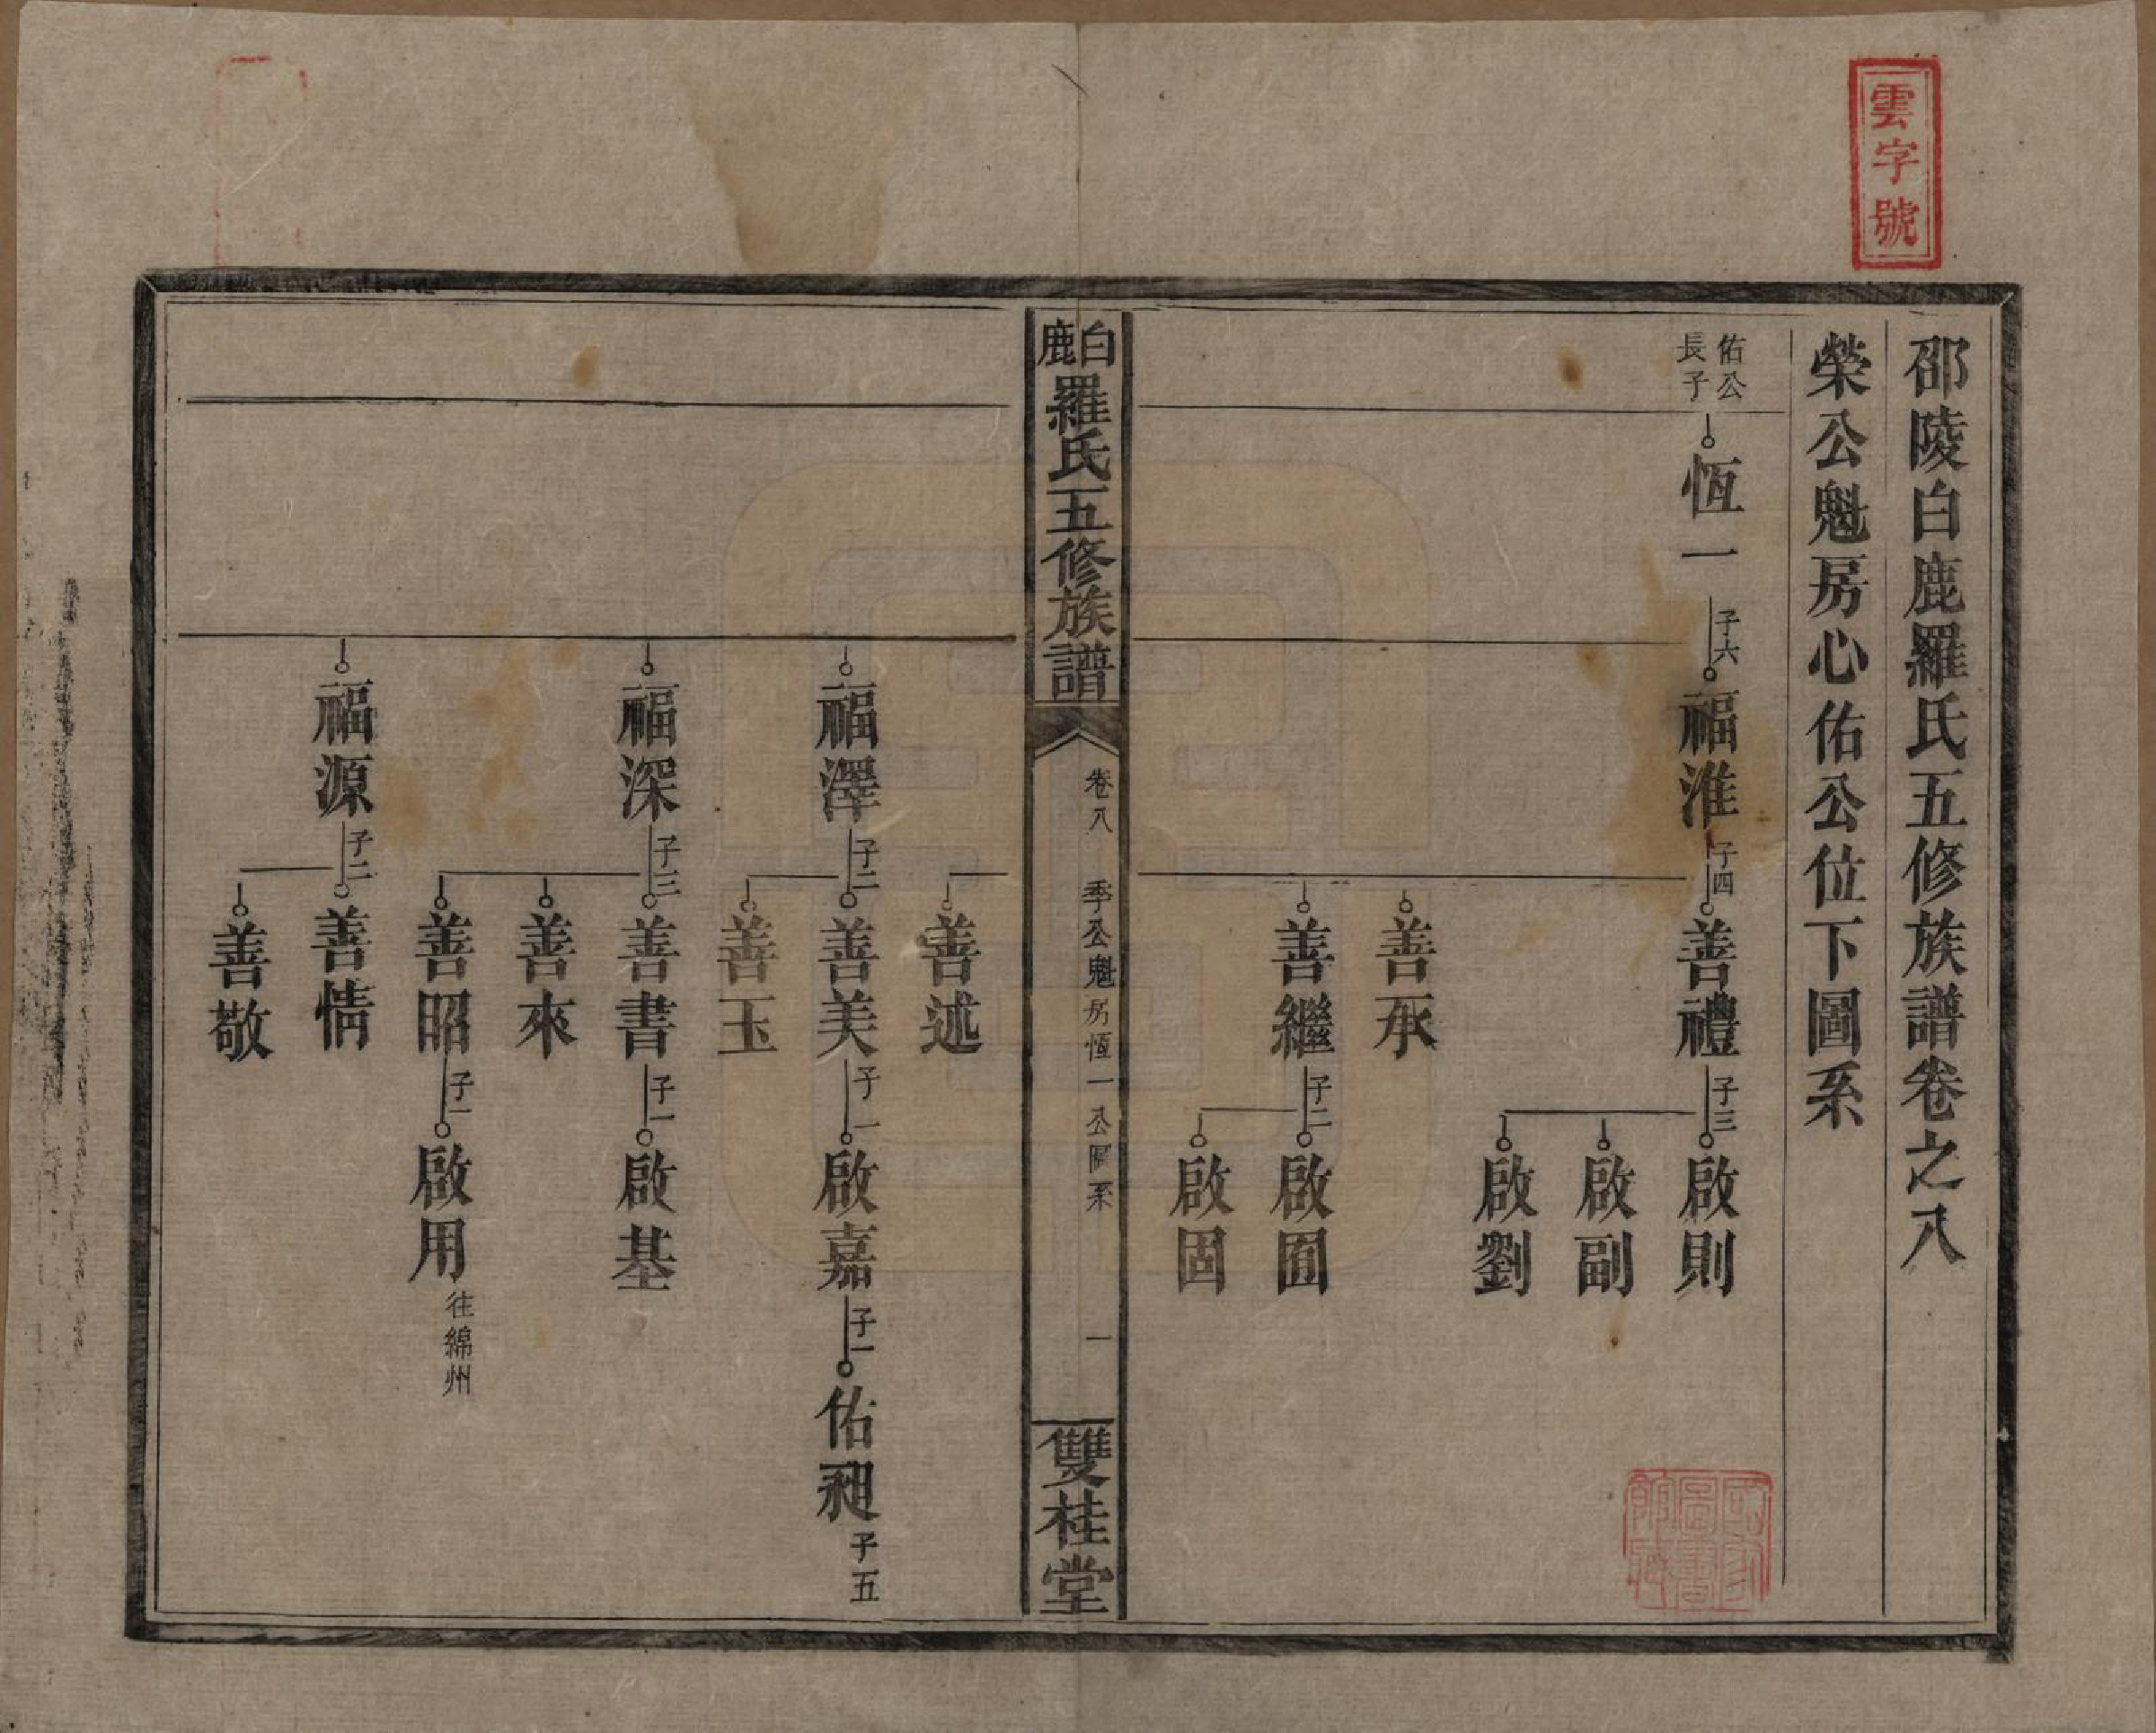 雲字號
邵陵白鹿羅氏五修族譜卷之八
榮公魁房心佑公位下圖系
佑公
長子
恆一
子六
福淮
子四
善禮
子三
啟則
啟副
啟劉
善承
善繼
子二
啟囿
啟固
白鹿羅氏五修族譜
卷八
季公魁房恆一公圖系
一
雙桂堂
善述
福澤
子二
善美
子一
啟嘉
子一
佑昶
子五
善玉
福深
子三
善書
子一
啟基
善來
善昭
子一
啟用
往綿州
福源
子二
善情
善敬